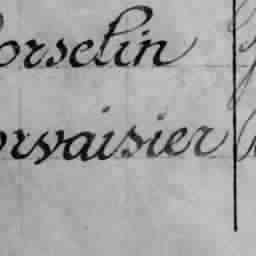 orselin
orvaisier